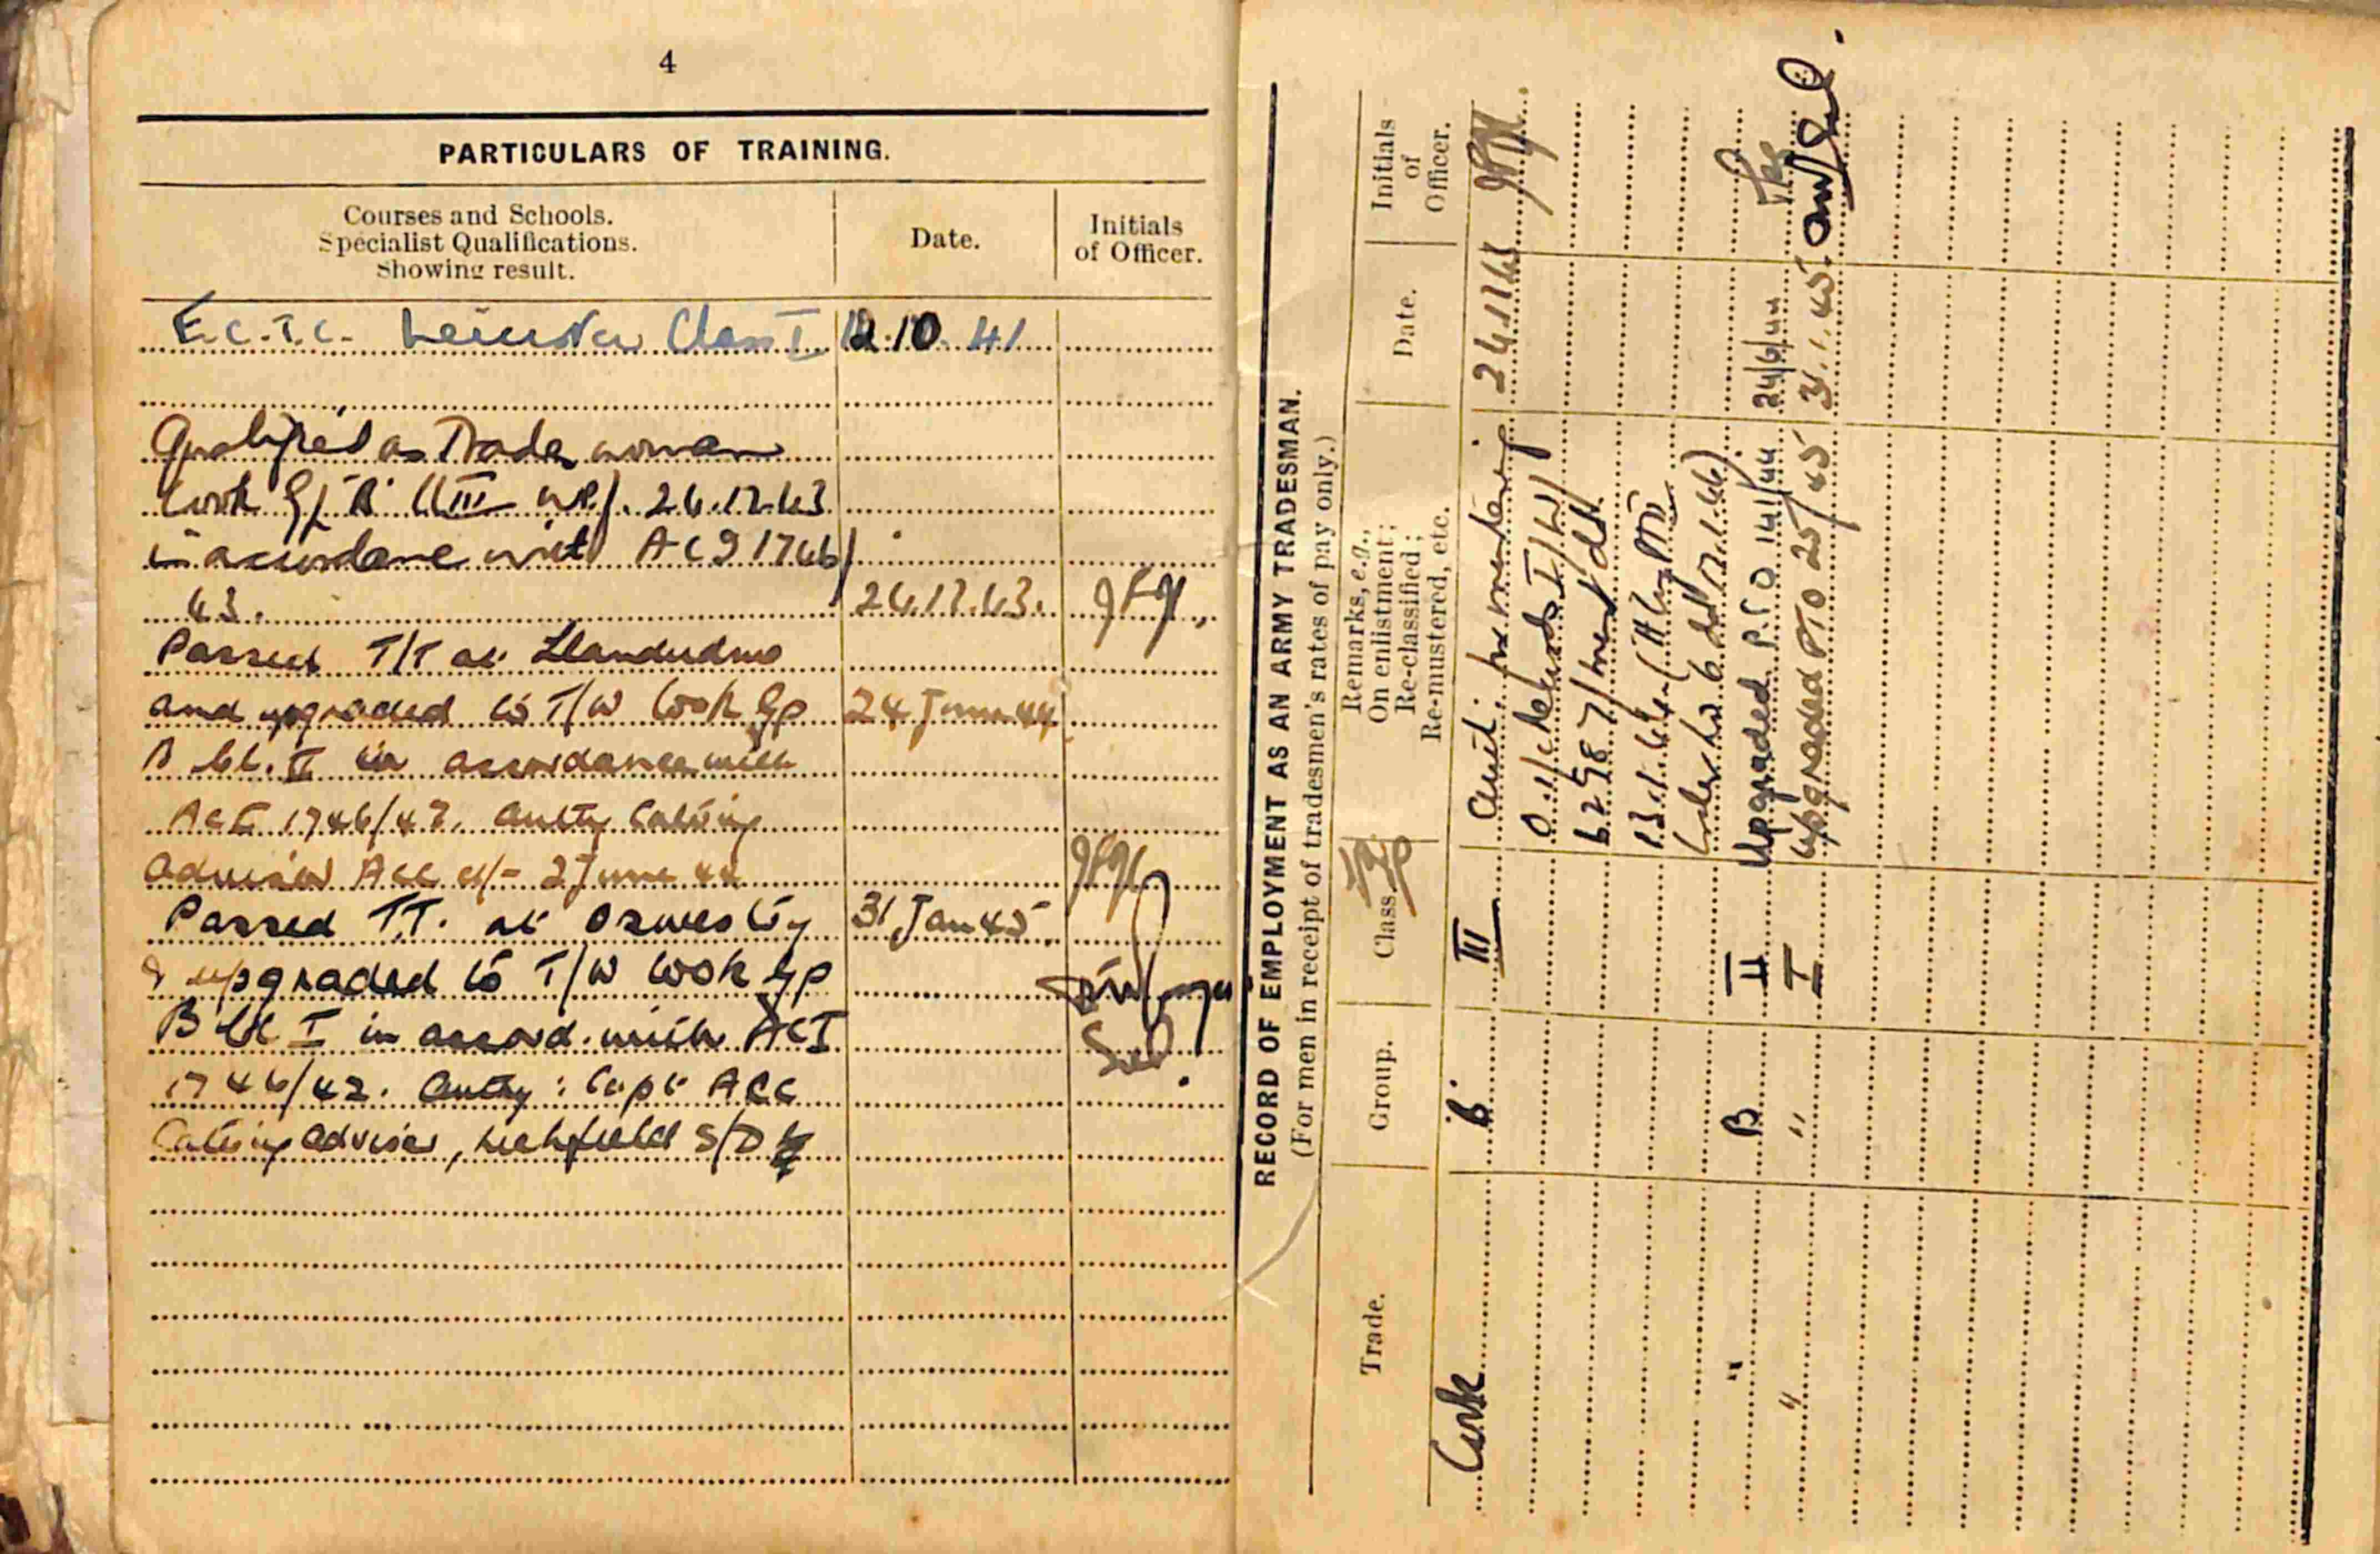 4
PARTICULARS OF TRAINING.
Courses and Schools.
Specialist Qualifications.
Showing result.
Date.
Initials
of Officer.
E.C.T.C. Leicester Class I 12.10.41
Qualified as Trades woman
Cook Gp B Cl III wef. 24.12.43
in accordance with ACI 1746/
43. 24.12.43.
Passed T/T at Llandudno
and upgraded to T/W Cook Gp 24 June 44
B Cl. II in accordance with
ACI 1746/42. Authy Catering
Adviser ACC d/- 2 June 44
Passed T.T. at Oswestry 31 Jan 45
& upgraded to T/W Cook Gp
B Cl I in accord. with ACI
1746/42. Authy: Capt ACC
Catering Adviser, Lichfield S/D
RECORD OF EMPLOYMENT AS AN ARMY TRADESMAN.
(For men in receipt of tradesmen's rates of pay only.)
Trade.
Group.
Class.
Remarks, e.g.,
On enlistment;
Re-classified;
Re-mustered, etc.
Date.
Initials
of
Officer.
Cook B. III
" B II Upgraded P.T.O 24/6/44
" " I Upgraded PTO 31.1.45.